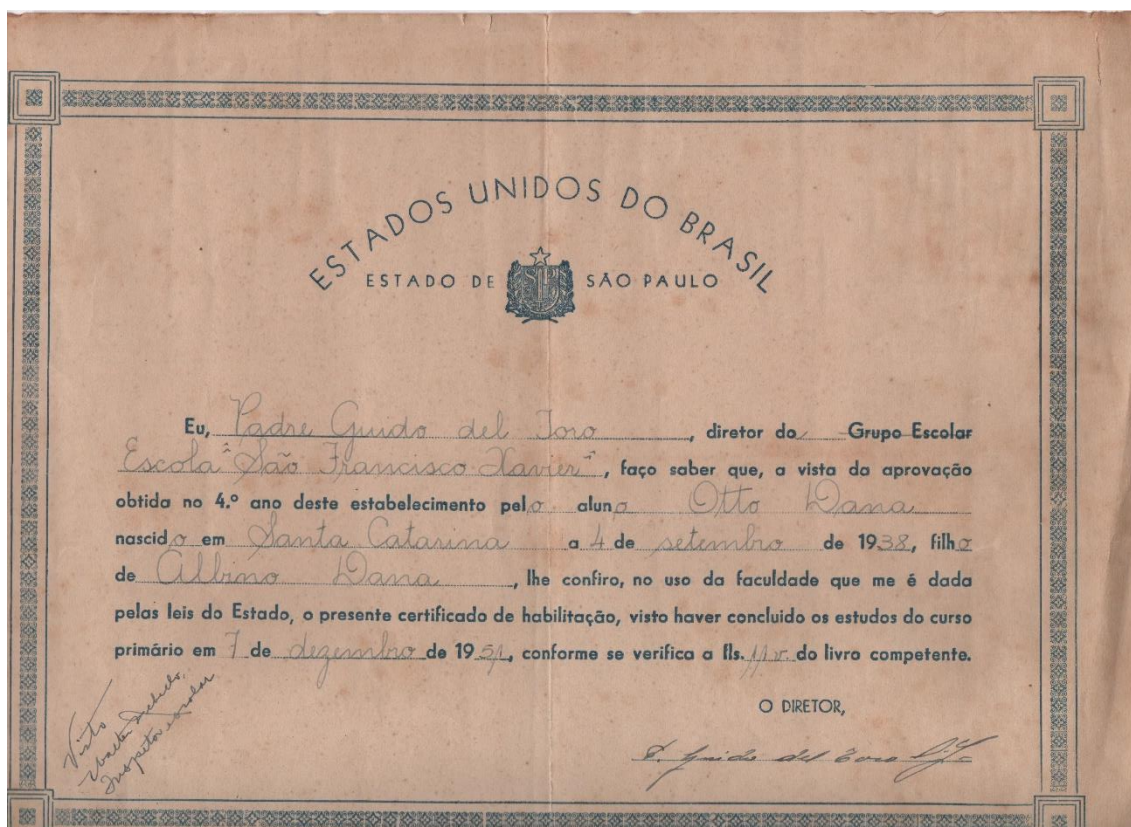 ESTADOS UNIDOS DO BRASIL
ESTADO DE SÃO PAULO
Eu, Padre Guido del Toro, diretor do Grupo Escolar
Escola "São Francisco Xavier", faço saber que, a vista da aprovação
obtida no 4.º ano deste estabelecimento pelo aluno Otto Dana
nascido em Santa Catarina a 4 de setembro de 1938, filho
de Albino Dana, lhe confiro, no uso da faculdade que me é dada
pelas leis do Estado, o presente certificado de habilitação, visto haver concluido os estudos do curso
primário em 7 de dezembro de 1951, conforme se verifica a fls. 11 v. do livro competente.
O DIRETOR,
P. Guido del Toro S.J.
Visto
Walter
Inspetor escolar